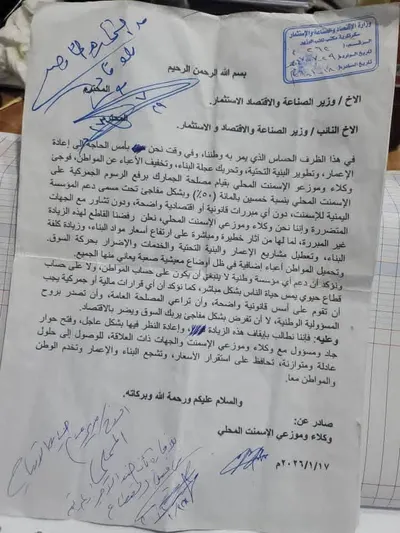 وزارة الإقتصاد والصناعة والاستثمار
بسم الله الرحمن الرحيم
الاخ / وزير الصناعة والاقتصاد الاستثمار. المحترم
الاخ النائب / وزير الصناعة والاقتصاد و الاستثمار.
في هذا الظرف الحساس الذي يمر به وطننا، وفي وقت نحن بأمس الحاجة إلى إعادة
الإعمار، وتطوير البنية التحتية، وتحريك عجلة البناء، وتخفيف الأعباء عن المواطن، فوجئ
وكلاء وموزعي الإسمنت المحلي بقيام مصلحة الجمارك برفع الرسوم الجمركية على
الإسمنت المحلي بنسبة خمسين بالمائة (٥٠٪) وبشكل مفاجئ تحت مسمى دعم المؤسسة
اليمنية للإسمنت، دون أي مبررات قانونية أو اقتصادية واضحة، ودون تشاور مع الجهات
المتضررة وإننا نحن وكلاء وموزعي الإسمنت المحلي، نعلن رفضنا القاطع لهذه الزيادة
غير المبررة، لما لها من آثار خطيرة ومباشرة على ارتفاع أسعار مواد البناء، وزيادة كلفة
البناء، وتعطيل مشاريع الإعمار والبنية التحتية والخدمات والإضرار بحركة السوق.
وتحميل المواطن أعباء إضافية في ظل أوضاع معيشية صعبة يعاني منها الجميع.
ونؤكد أن دعم أي مؤسسة وطنية لا ينبغي أن يكون على حساب المواطن، ولا على حساب
قطاع حيوي يمس حياة الناس بشكل مباشر، كما نؤكد أن أي قرارات مالية أو جمركية يجب
أن تقوم على أسس قانونية واضحة، وأن تراعي المصلحة العامة، وأن تصدر بروح
المسؤولية الوطنية، لا أن تفرض بشكل مفاجئ يربك السوق ويضر بالاقتصاد.
وعليه: فإننا نطالب بإيقاف هذه الزيادة وإعادة النظر فيها بشكل عاجل، وفتح حوار
جاد ومسؤول مع وكلاء وموزعي الإسمنت والجهات ذات العلاقة، للوصول إلى حلول
عادلة ومتوازنة، تحافظ على استقرار الأسعار، وتشجع البناء والإعمار وتخدم الوطن
والمواطن معا.
والسلام عليكم ورحمة الله وبركاته.
صادر عن:
وكلاء وموزعي الإسمنت المحلي
٢٠٢٦/١/١٧م